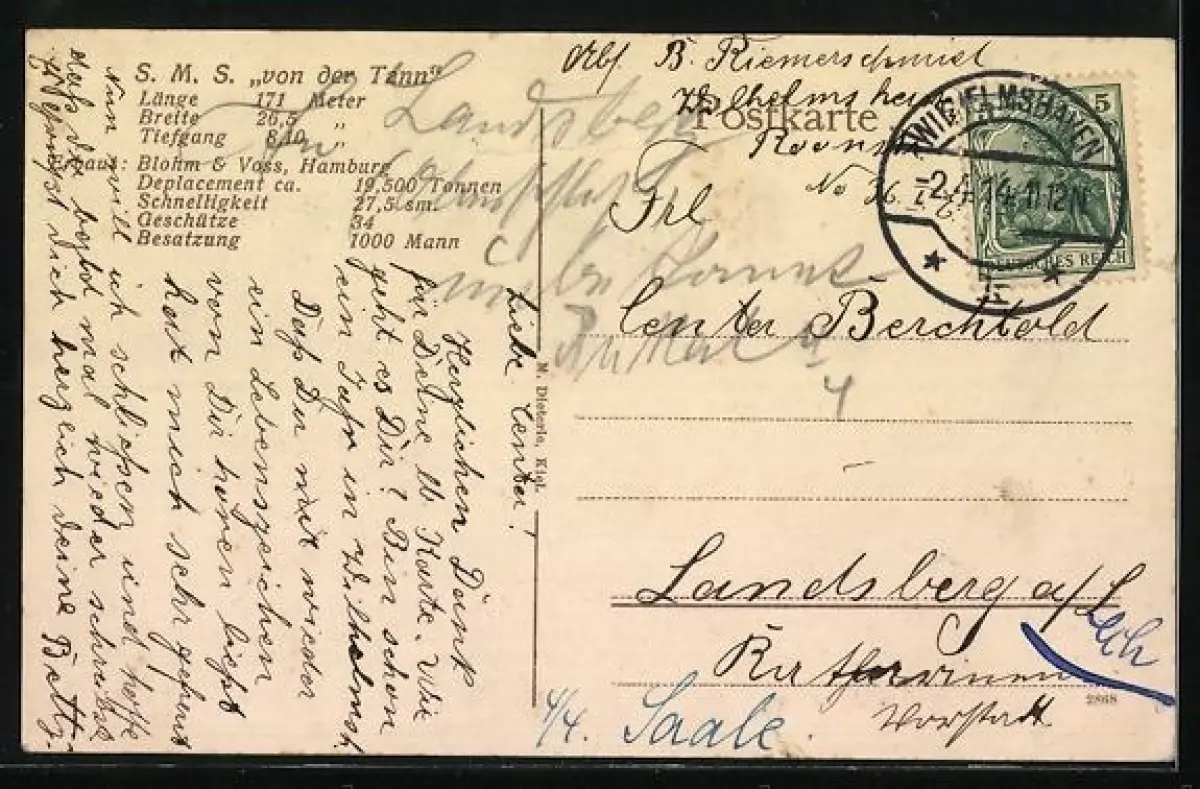 S. M. S. „von der Tann"
Länge 171 Meter
Breite 26,5 „
Tiefgang 8,10 „
Erbaut: Blohm & Voss, Hamburg
Deplacement ca. 19,500 Tonnen
Schnelligkeit 27,5 sm.
Geschütze 34
Besatzung 1000 Mann
Liebe Center!
Herzlichen Dank
für Deine lb. Karte. Wie
geht es Dir? Bin schon
ein Jahr in Wilhelmsh.
Daß Du mir wieder
ein Lebenszeichen
von Dir hören ließt
hat mich sehr gefreut
Nun will ich schließen und hoffe
daß du bald mal wieder schreibst
Es grüßt dich herzlich deine Betty.
M. Dieterle, Kiel.
Abs B. Riemerschmid
Wilhelmshav
Postkarte
Roonst
No
WILHELMSHAVEN
-2.4.14.11-12N
5
DEUTSCHES REICH
Frl
Center Berchtold
Landsberg a/Lech
Katharinen
Vorstadt
2868
4/4. Saale.
Landsberg
4